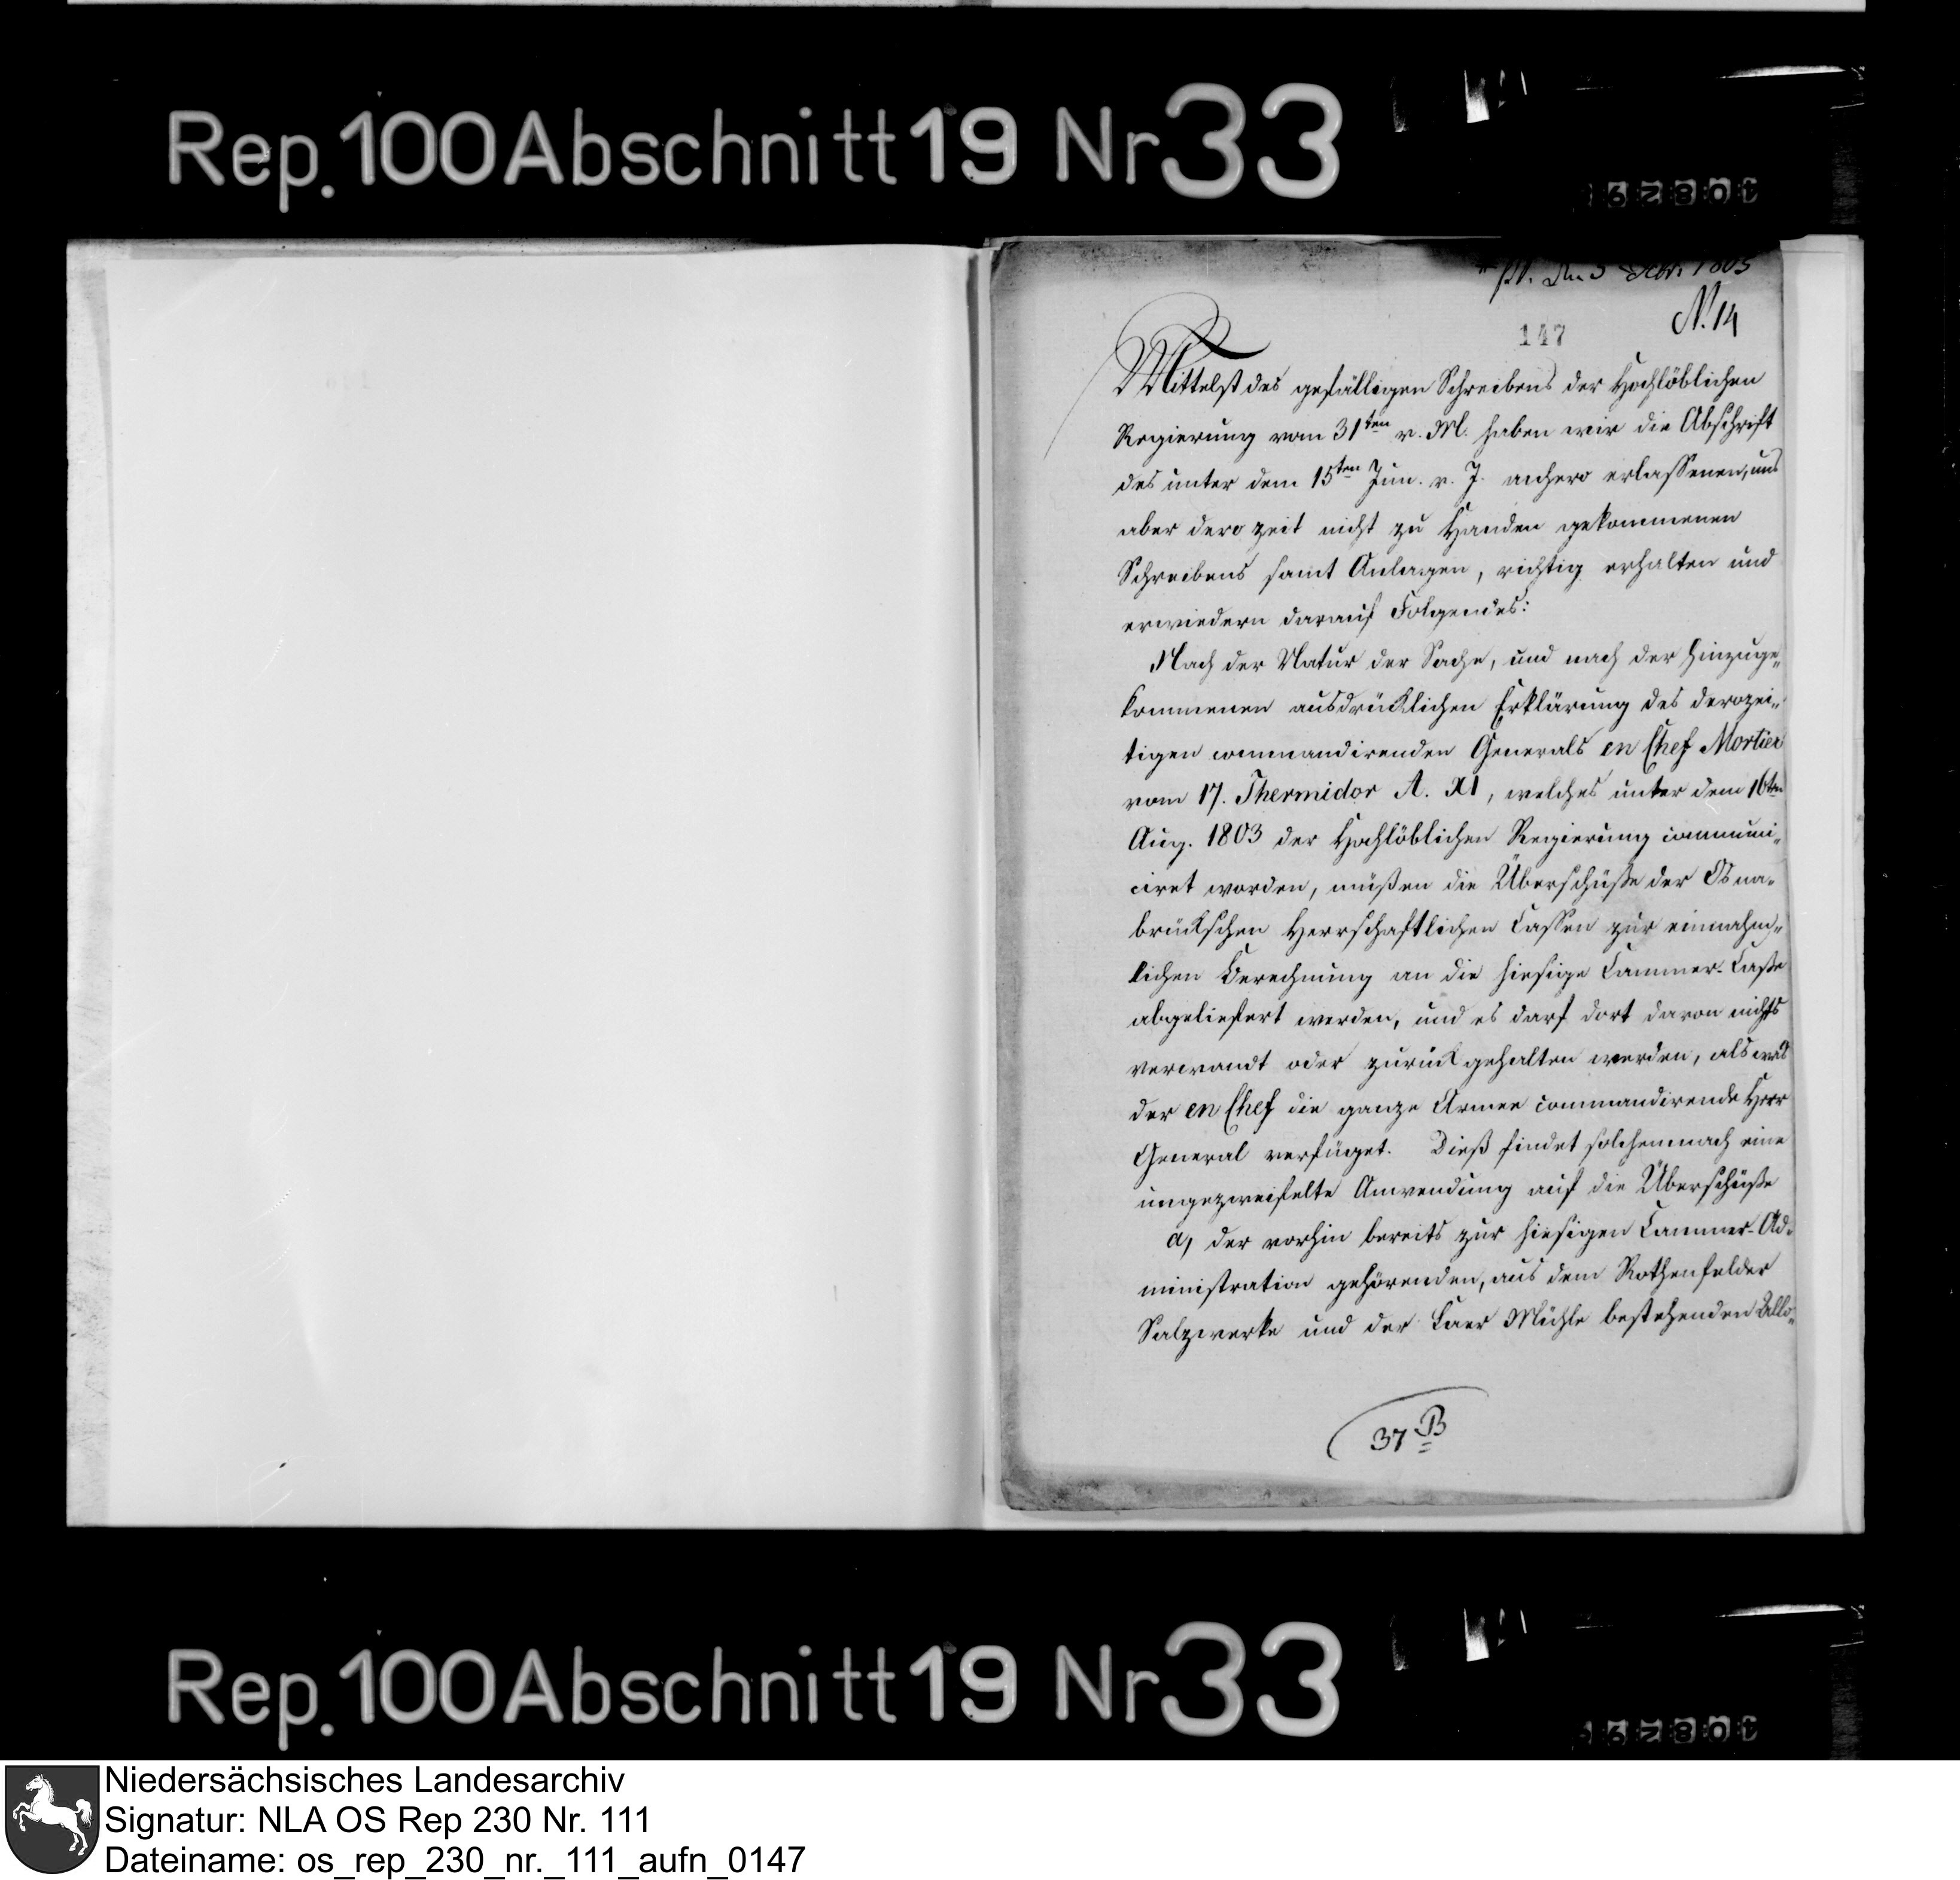 Rep. 100 Abschnitt 19 Nr 33
147
N. 14
Mittelst des gefälligen Schreibens der Hochlöblichen
Regierung vom 31ten v. M. haben wir die Abschrift
des unter dem 15ten Jun. v. J. anhero erlassenen, uns
aber derozeit nicht zu Handen gekommenen
Schreibens samt Anlagen, richtig erhalten und
erwiedern darauf Folgendes:
Nach der Natur der Sache, und nach der hinzuge„
kommenen ausdrücklichen Erklärung des derozei„
tigen commandirenden Generals en Chef Mortier
vom 17. Thermidor A. XI, welches unter dem 16ten
Aug. 1803 der Hochlöblichen Regierung communi„
ciret worden, müßen die Überschüße der Osna„
brückschen Herrschaftlichen Cassen zur einnahm„
lichen Berechnung an die hiesige Cammer-Casse
abgeliefert werden, und es darf dort davon nichts
verwandt oder zurückgehalten werden, als was
der en Chef die ganze Armee commandirende Herr
General verfüget. Dieß findet solchemnach eine
ungezweifelte Anwendung auf die Überschüße
a, der vorhin bereits zur hiesigen Cammer-Ad„
ministration gehörenden, aus dem Rothenfelder
Salzwerke und der Laer Mühle bestehenden Allo„
37 B
Rep. 100 Abschnitt 19 Nr 33
Niedersächsisches Landesarchiv
Signatur: NLA OS Rep 230 Nr. 111
Dateiname: os_rep_230_nr._111_aufn_0147